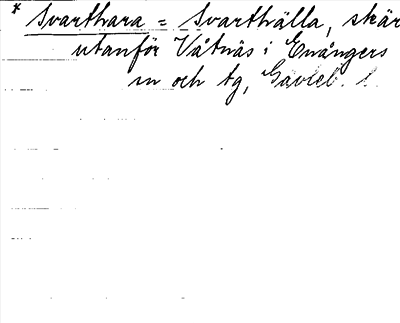 * Svarthara = Svarthälla, skär
utanför Våtnäs i Enångers
sn och tg, Gävleb. l.